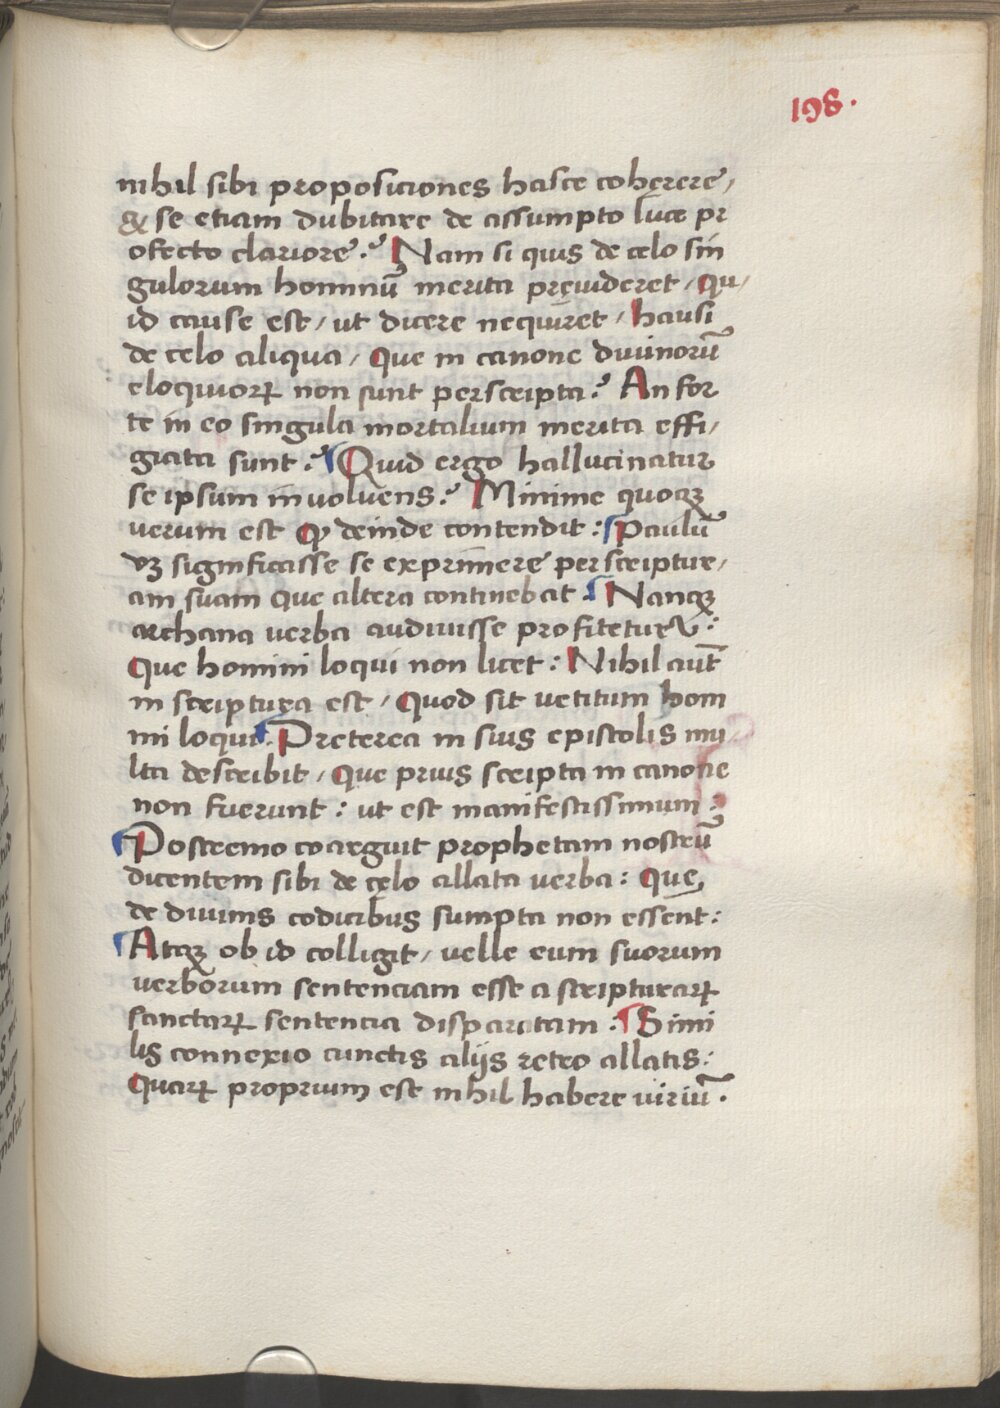 198.
nihil sibi proposiciones hasce coherere /
& se etiam dubitare de assumpto luce pr
ofecto clariore. ? Nam si quis de celo sin
gulorum hominū merita preuideret / Qu /
id cause est / ut dicere nequiret / hausi
de celo aliqua / Que in canone diuinorū
eloquiorꝝ non sunt perscripta ? An for
te in eo singula mortalium merita effi /
giata sunt ? Quid ergo hallucinatur
se ipsum inuoluens ? Minime quoqꝫ
uerum est Qꝫ deinde contendit : Paulū
vꝫ significasse se exprimere perscriptur /
am suam Que altera continebat . Nanqꝫ
archana uerba audiuisse profitetur :
Que homini loqui non licet : Nihil aut̄
in scriptura est / Quod sit uetitum hom
ini loqui . Preterea in suis epistolis mu /
lta describit / Que prius scripta in canone
non fuerunt : ut est manifestissimum :
Postremo coarguit prophetam nostrū
dicentem sibi de celo allata uerba : Que
de diuinis codicibus sumpta non essent :
Atqꝫ ob id colligit / uelle eum suorum
uerborum sentenciam esse a scripturarꝝ
sanctarꝝ sentencia disparatam : Simi
lis connexio cunctis alijs retro allatis :
Quarꝝ proprium est nihil habere uiriū .